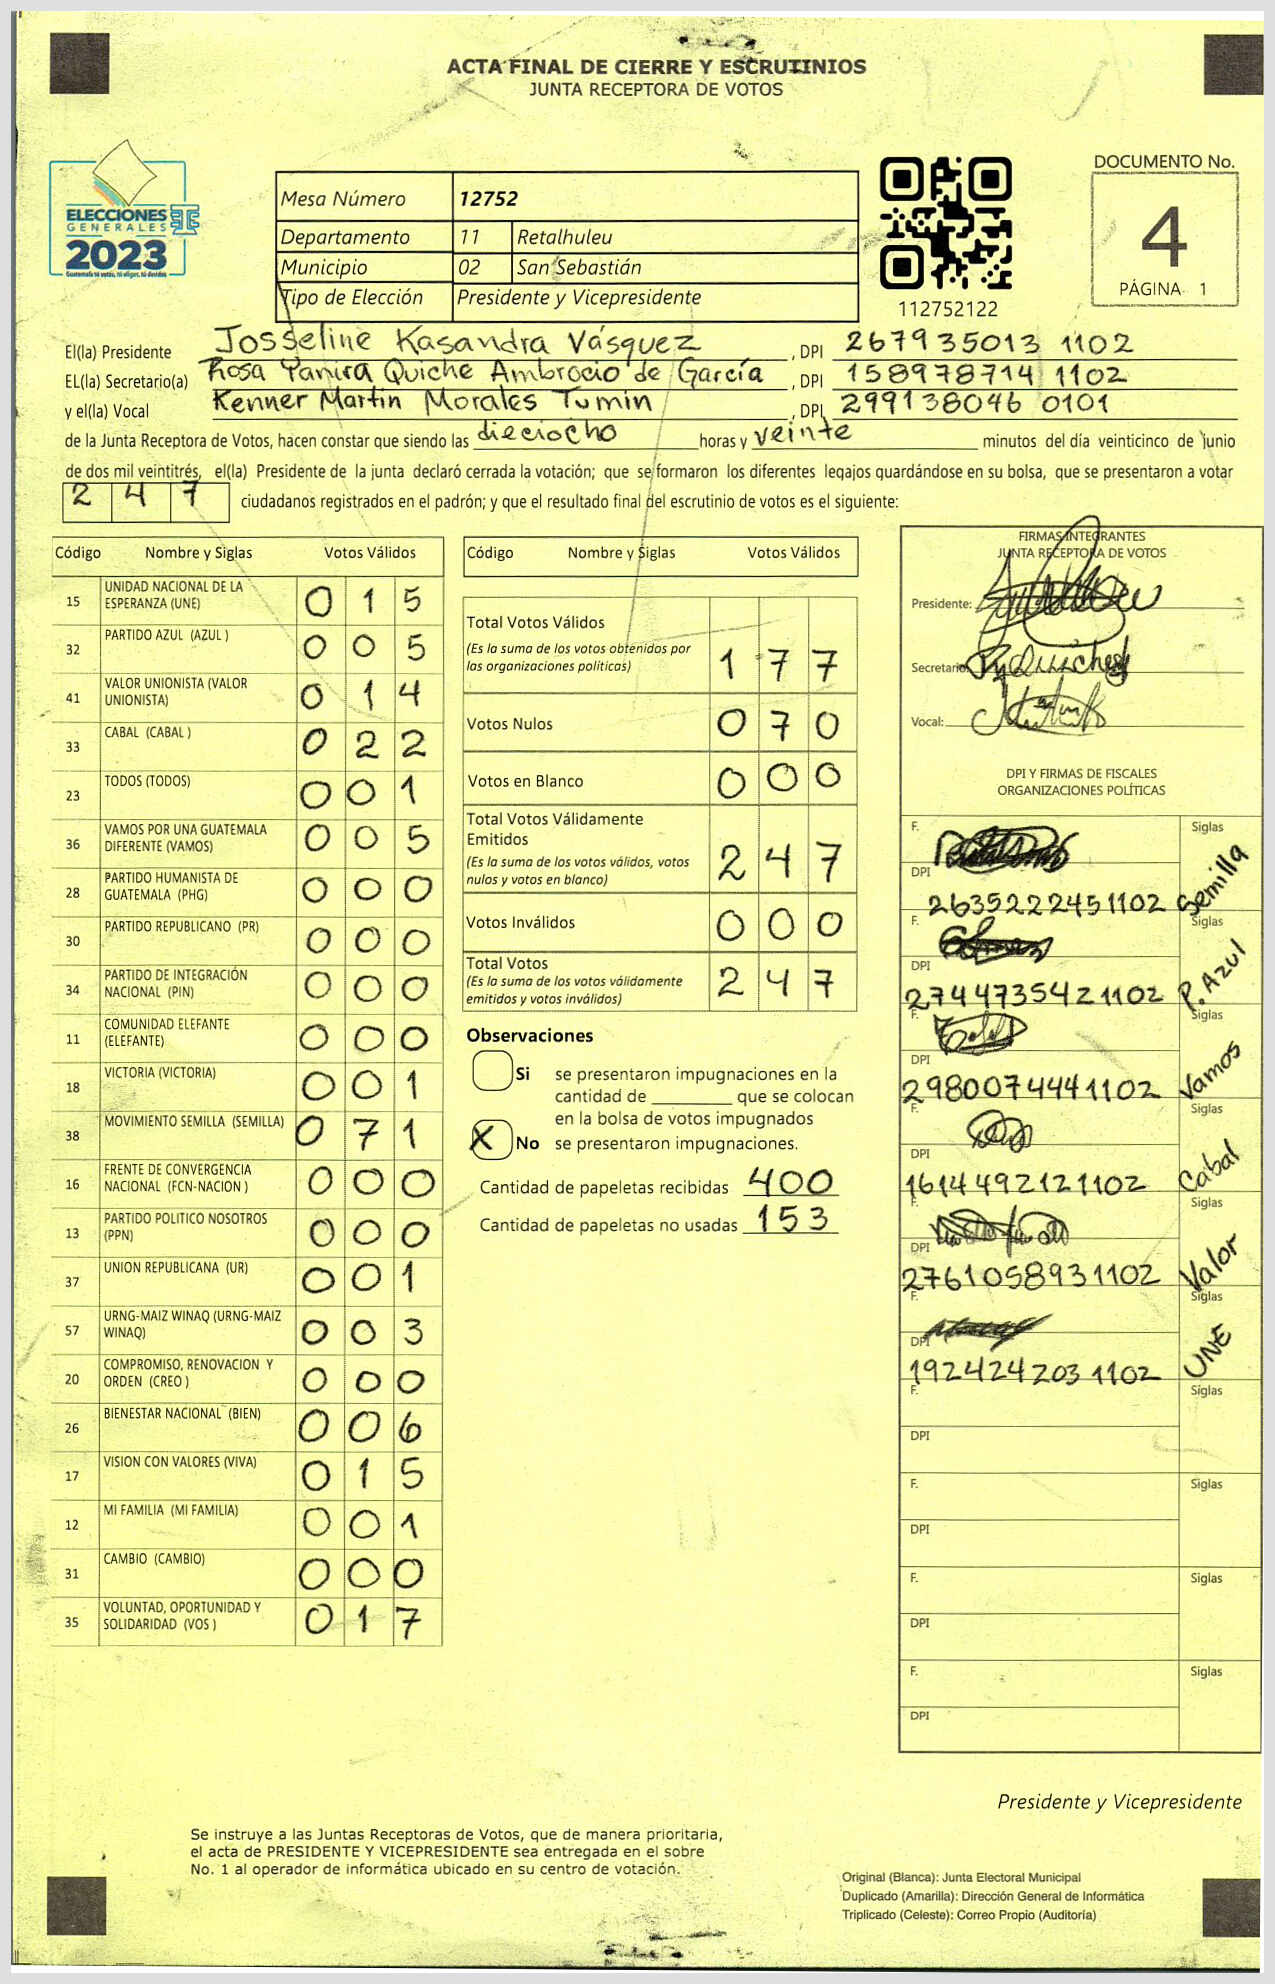 ACTA FINAL DE CIERRE Y ESCRUTINIOS
JUNTA RECEPTORA DE VOTOS
ELECCIONES
GENERALES
2023
Guatemala tú votas, tú eliges, tú decides
Mesa Número 12752
Departamento 11 Retalhuleu
Municipio 02 San Sebastián
Tipo de Elección Presidente y Vicepresidente
112752122
DOCUMENTO No.
4
PÁGINA 1
El(la) Presidente Josseline Kasandra Vásquez, DPI 267935013 1102
EL(la) Secretario(a) Rosa Yanira Quiche Ambrocio de García, DPI 158978714 1102
y el(la) Vocal Kenner Martin Morales Tumin, DPI 299138046 0101
de la Junta Receptora de Votos, hacen constar que siendo las dieciocho horas y veinte minutos del día veinticinco de junio
de dos mil veintitrés, el(la) Presidente de la junta declaró cerrada la votación; que se formaron los diferentes legajos guardándose en su bolsa, que se presentaron a votar
2 4 7 ciudadanos registrados en el padrón; y que el resultado final del escrutinio de votos es el siguiente:
Código Nombre y Siglas Votos Válidos
15 UNIDAD NACIONAL DE LA ESPERANZA (UNE) 0 1 5
32 PARTIDO AZUL (AZUL ) 0 0 5
41 VALOR UNIONISTA (VALOR UNIONISTA) 0 1 4
33 CABAL (CABAL ) 0 2 2
23 TODOS (TODOS) 0 0 1
36 VAMOS POR UNA GUATEMALA DIFERENTE (VAMOS) 0 0 5
28 PARTIDO HUMANISTA DE GUATEMALA (PHG) 0 0 0
30 PARTIDO REPUBLICANO (PR) 0 0 0
34 PARTIDO DE INTEGRACIÓN NACIONAL (PIN) 0 0 0
11 COMUNIDAD ELEFANTE (ELEFANTE) 0 0 0
18 VICTORIA (VICTORIA) 0 0 1
38 MOVIMIENTO SEMILLA (SEMILLA) 0 7 1
16 FRENTE DE CONVERGENCIA NACIONAL (FCN-NACION ) 0 0 0
13 PARTIDO POLITICO NOSOTROS (PPN) 0 0 0
37 UNION REPUBLICANA (UR) 0 0 1
57 URNG-MAIZ WINAQ (URNG-MAIZ WINAQ) 0 0 3
20 COMPROMISO, RENOVACION Y ORDEN (CREO ) 0 0 0
26 BIENESTAR NACIONAL (BIEN) 0 0 6
17 VISION CON VALORES (VIVA) 0 1 5
12 MI FAMILIA (MI FAMILIA) 0 0 1
31 CAMBIO (CAMBIO) 0 0 0
35 VOLUNTAD, OPORTUNIDAD Y SOLIDARIDAD (VOS ) 0 1 7
Código Nombre y Siglas Votos Válidos
Total Votos Válidos
(Es la suma de los votos obtenidos por
las organizaciones politicas) 1 7 7
Votos Nulos 0 7 0
Votos en Blanco 0 0 0
Total Votos Válidamente
Emitidos
(Es la suma de los votos válidos, votos
nulos y votos en blanco) 2 4 7
Votos Inválidos 0 0 0
Total Votos
(Es la suma de los votos válidamente
emitidos y votos inválidos) 2 4 7
Observaciones
Si se presentaron impugnaciones en la
cantidad de ________ que se colocan
en la bolsa de votos impugnados
X No se presentaron impugnaciones.
Cantidad de papeletas recibidas 400
Cantidad de papeletas no usadas 153
FIRMAS INTEGRANTES
JUNTA RECEPTORA DE VOTOS
Presidente:
Secretario:
Vocal:
DPI Y FIRMAS DE FISCALES
ORGANIZACIONES POLÍTICAS
F. Siglas
DPI 2635222451102 Semilla
F. Siglas
DPI 2744735421102 P. Azul
F. Siglas
DPI 2980074441102 Vamos
F. Siglas
DPI 1614492121102 Cabal
F. Siglas
DPI 2761058931102 Valor
F. Siglas
DPI 192424203 1102 UNE
F. Siglas
DPI
F. Siglas
DPI
F. Siglas
DPI
F. Siglas
DPI
Presidente y Vicepresidente
Se instruye a las Juntas Receptoras de Votos, que de manera prioritaria,
el acta de PRESIDENTE Y VICEPRESIDENTE sea entregada en el sobre
No. 1 al operador de informática ubicado en su centro de votación.
Original (Blanca): Junta Electoral Municipal
Duplicado (Amarilla): Dirección General de Informática
Triplicado (Celeste): Correo Propio (Auditoría)